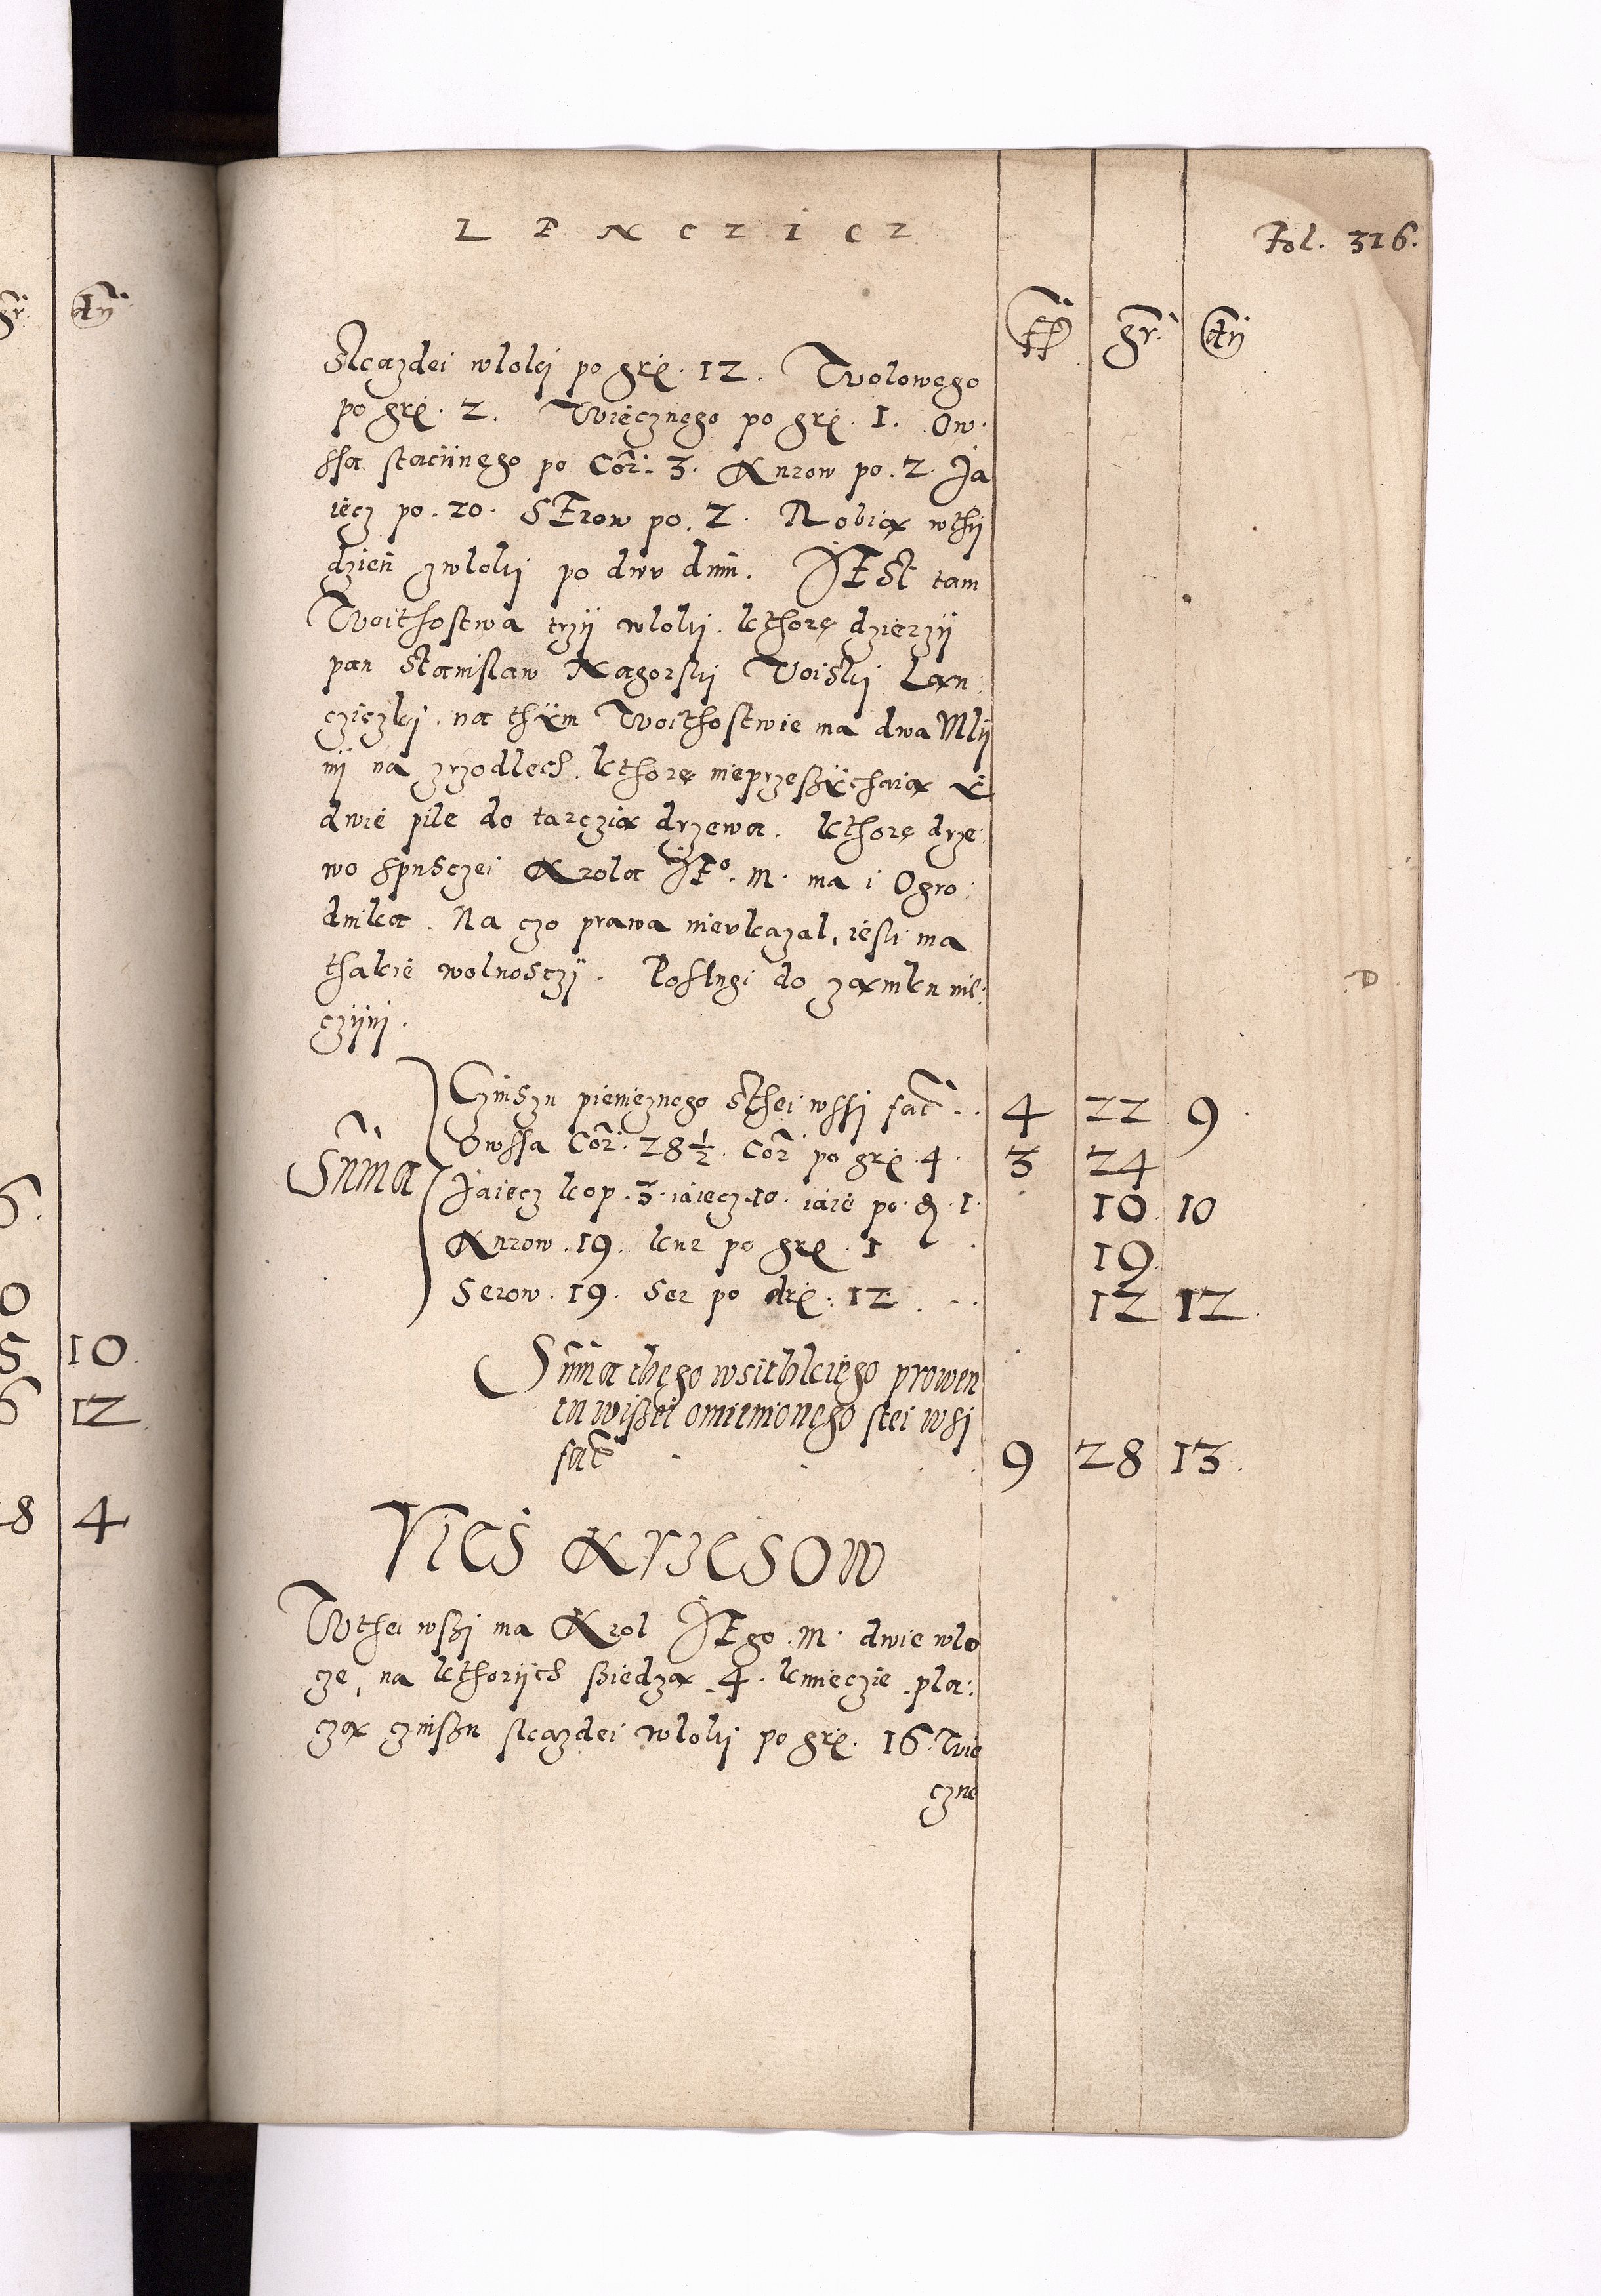 LENCZICZ
Fol. 316.
ff gr. dn
Skazdei wloki po grę. 12. Wolowego
po grę. 2. Więcznego po grę. 1. Ow:
ssa staciinego po Cor: 3. Kurow po. 2. Ja
iecz po. 20. SErow po. 2. Robią wthÿ
dzień zwloki po dwu dnu. JESt tam
Woithostwa trzÿ wloki. kthorę dzierzÿ
pan Stanislaw Nagorski Woiski Lan:
cziczki. na thÿm Woithostwie ma dwa Mlÿ
ni na zrzodlech. kthorę nieprzeßÿchaią ÿ
dwie pile do tarczią drzewa. kthorę drze:
wo spusczei Krola JEº. M. ma i Ogro:
dnika. Na czo prawa nieukazal, iesli ma
thakie wolnosczÿ. Poslugi do zamku nie:
czÿni.
Suma
Czinszu pienięznego Sthei wssi fac̃ 4 22 9
Owssa Cor: 28 1/2. Cor po grę. 4. 3 24
Jaiecz kop. 3. iaiecz. 10. iaie po. d. 1. 10 10
Kurow. 19. kur po grę. 1 19.
Serow. 19. Ser po drę: 12 12 12.
Suma thego wsithkiego prowen
tu wißei omienionego stei wsi
fac̃ 9 28 13.
Vies Krzesow
Wthei wßi ma Krol JEgo. M. dwie wlo
cze, na kthorÿch ßiedzą. 4. kmieczie. pla:
czą czinßu skazdei wloki po grę. 16. Wie
czne
gr. dn
10.
12
8 4
D